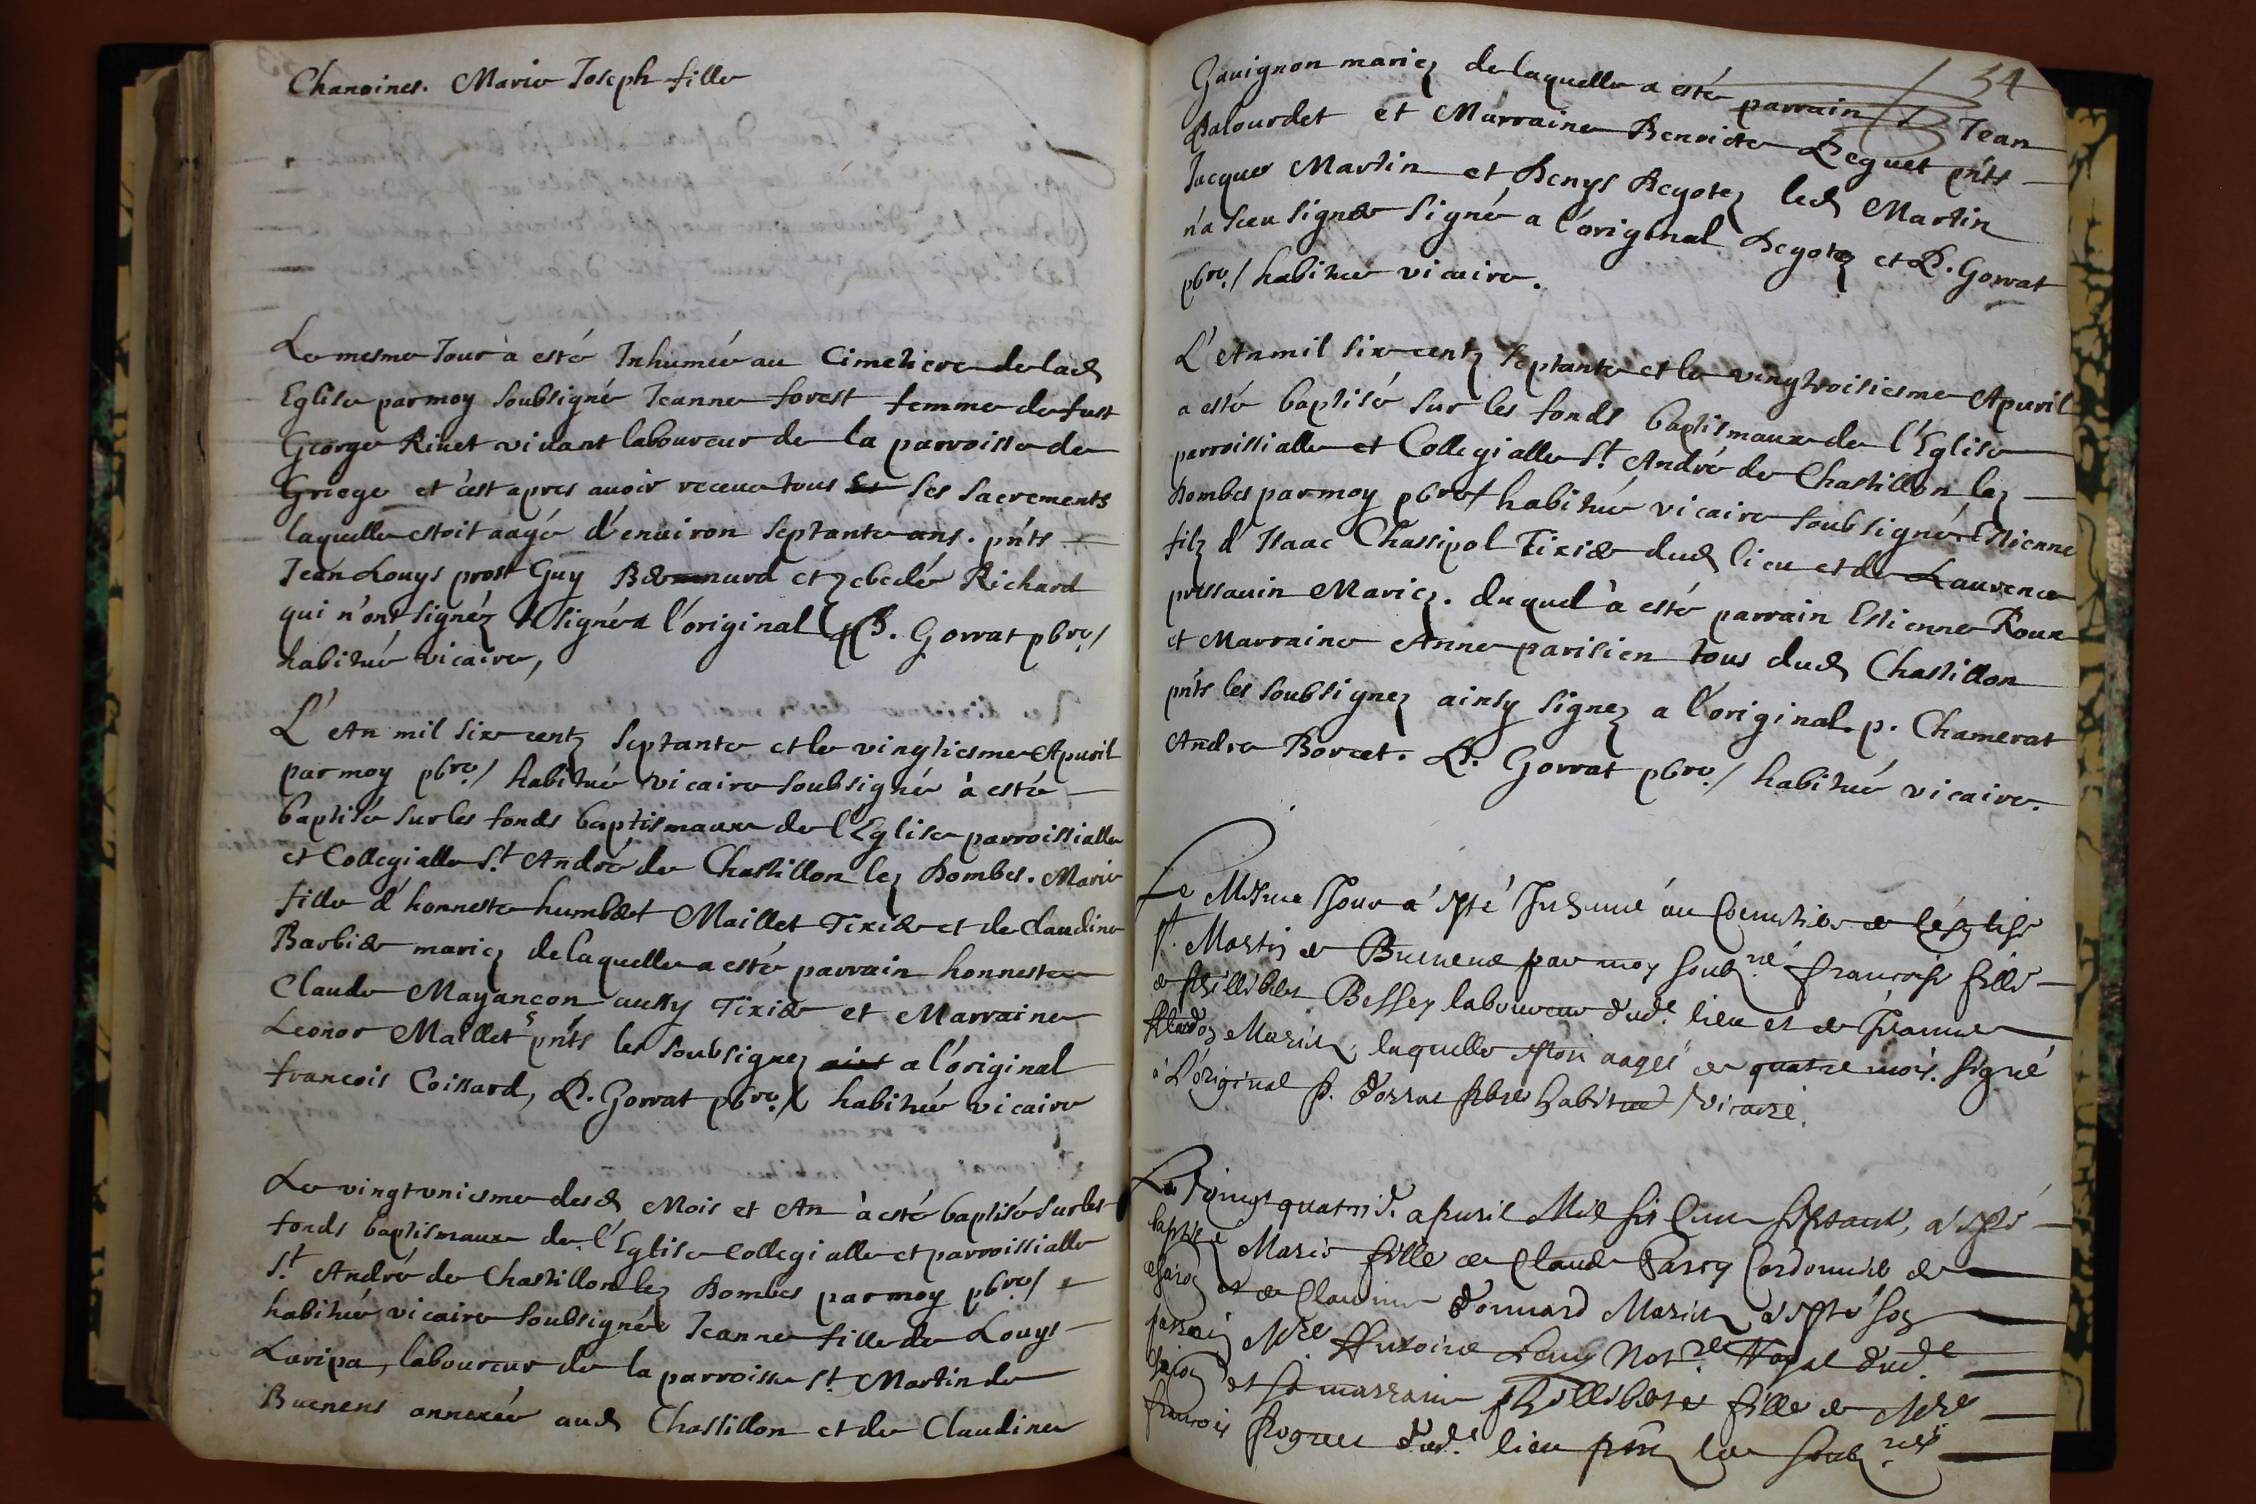 Chanoines. Marie Joseph fille
Le mesme Jour à esté Inhumée au Cimetiere de lad
Eglise par moy soubsigné Jeanne forest femme de fust
George Rivet vivant laboureur de la parroisse de
Griege et c'est apres avoir receue tous ses sacrements
laquelle estoit aagé d'environ septante ans. pnts
Jean Louys prost Guy et zebedé Richard
qui n'ont signéz signé a l'original P. Gorrat pbre/
habitué vicaire,
L'An mil six centz septante et le vingtiesme Apvril
par moy pbre/ habitué vicaire soubsigné à esté
baptisé sur les fonds baptismaux de l'Eglise parroissialle
et Collegialle St André de Chastillon lez Dombes. Marie
fille d'honneste humbert Maillet Tixier et de Claudine
Barbier mariez de laquelle a esté parrain honneste
Claude Mayançon aussy Tixier et Marraine
Leonor Maillet pnts les soubsignez a l'original
francois Coissard, P. Gorrat pbre/ habitué vicaire
Le vingt uniesme desd Mois et An à esté baptisé sur les
fonds baptismaux de l'Eglise collegialle et parroissialle
St André de Chastillon lez Dombes par moy pbre/
habitué vicaire soubsigné Jeanne fille de Louys
Laripa, laboureur de la parroisse St Martin de
Buenens annexée aud Chastillon et de Claudine
34
Gavignon mariez de laquelle a esté parrain Jean
Palourdet et Marraine Benoicte Peguet pnts
Jacque Martin et Denys Reyotez led Martin
n'a sceu signer signé a l'original Reyotez et P. Gorrat
pbre/ habitué vicaire.
L'An mil six centz septante et le vingtroisiesme Apvril
a esté baptisé sur les fonds baptismaux de l'Eglise
parroissialle et Collegialle St André de Chastillon lez
Dombes par moy pbre/ habitué vicaire soubsigné Estienne
filz d'Isaac Chassipol Tixier dud lieu et de Laurence
pressavin Mariez. duquel à esté parrain Estienne Roux
et Marraine Anne parisien tous dud Chastillon
pnts les soubsignez ainsy signez a l'original. p. Chamerat
Andre Borcet. P. Gorrat pbre/ habitué vicaire.
Le Mesme Jour a esté Inhumé au Cemetiere de l'église
St Martin de Buenens par moy soubné francoise fille
de phillibert Bessey laboureur dude lieu et de Jeanne
Mariez, laquelle estoit aagée de quatre mois. signé
à L'original P. Gorrat pbre habitué vicaire.
Le vingt quatrie. apvril Mil six Cens septante, a esté
baptisé Marie fille de Claude Parcy Cordonnier de
et de Claudine Mariez, a esté son
parrain Mre Anthoine Notre Royal dude
et sa marraine Philliberte fille de Mre
francois dude. lieu pnts les soubnés